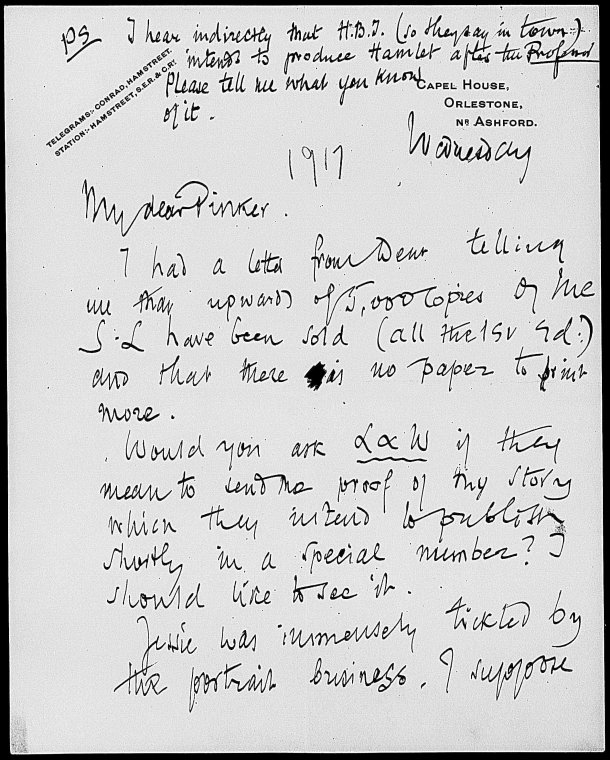 PS I hear indirectly that H.B.I. (so they say in town)
intends to produce Hamlet after the Professor
Please tell me what you know
of it.
TELEGRAMS:- CONRAD, HAMSTREET.
STATION:- HAMSTREET, S.E.R. & C.RY.
CAPEL HOUSE,
ORLESTONE,
NR ASHFORD.
Wednesday
1917
My dear Pinker.
I had a letter from Dent telling
me that upwards of 5,000 Copies of the
S-L have been sold (all the 1st Ed:)
and that there is no paper to print
more.
Would you ask L & W if they
mean to send me proof of my story
which they intend to publish
shortly in a special number? I
should like to see it.
Jessie was immensely tickled by
the portrait business. I suppose